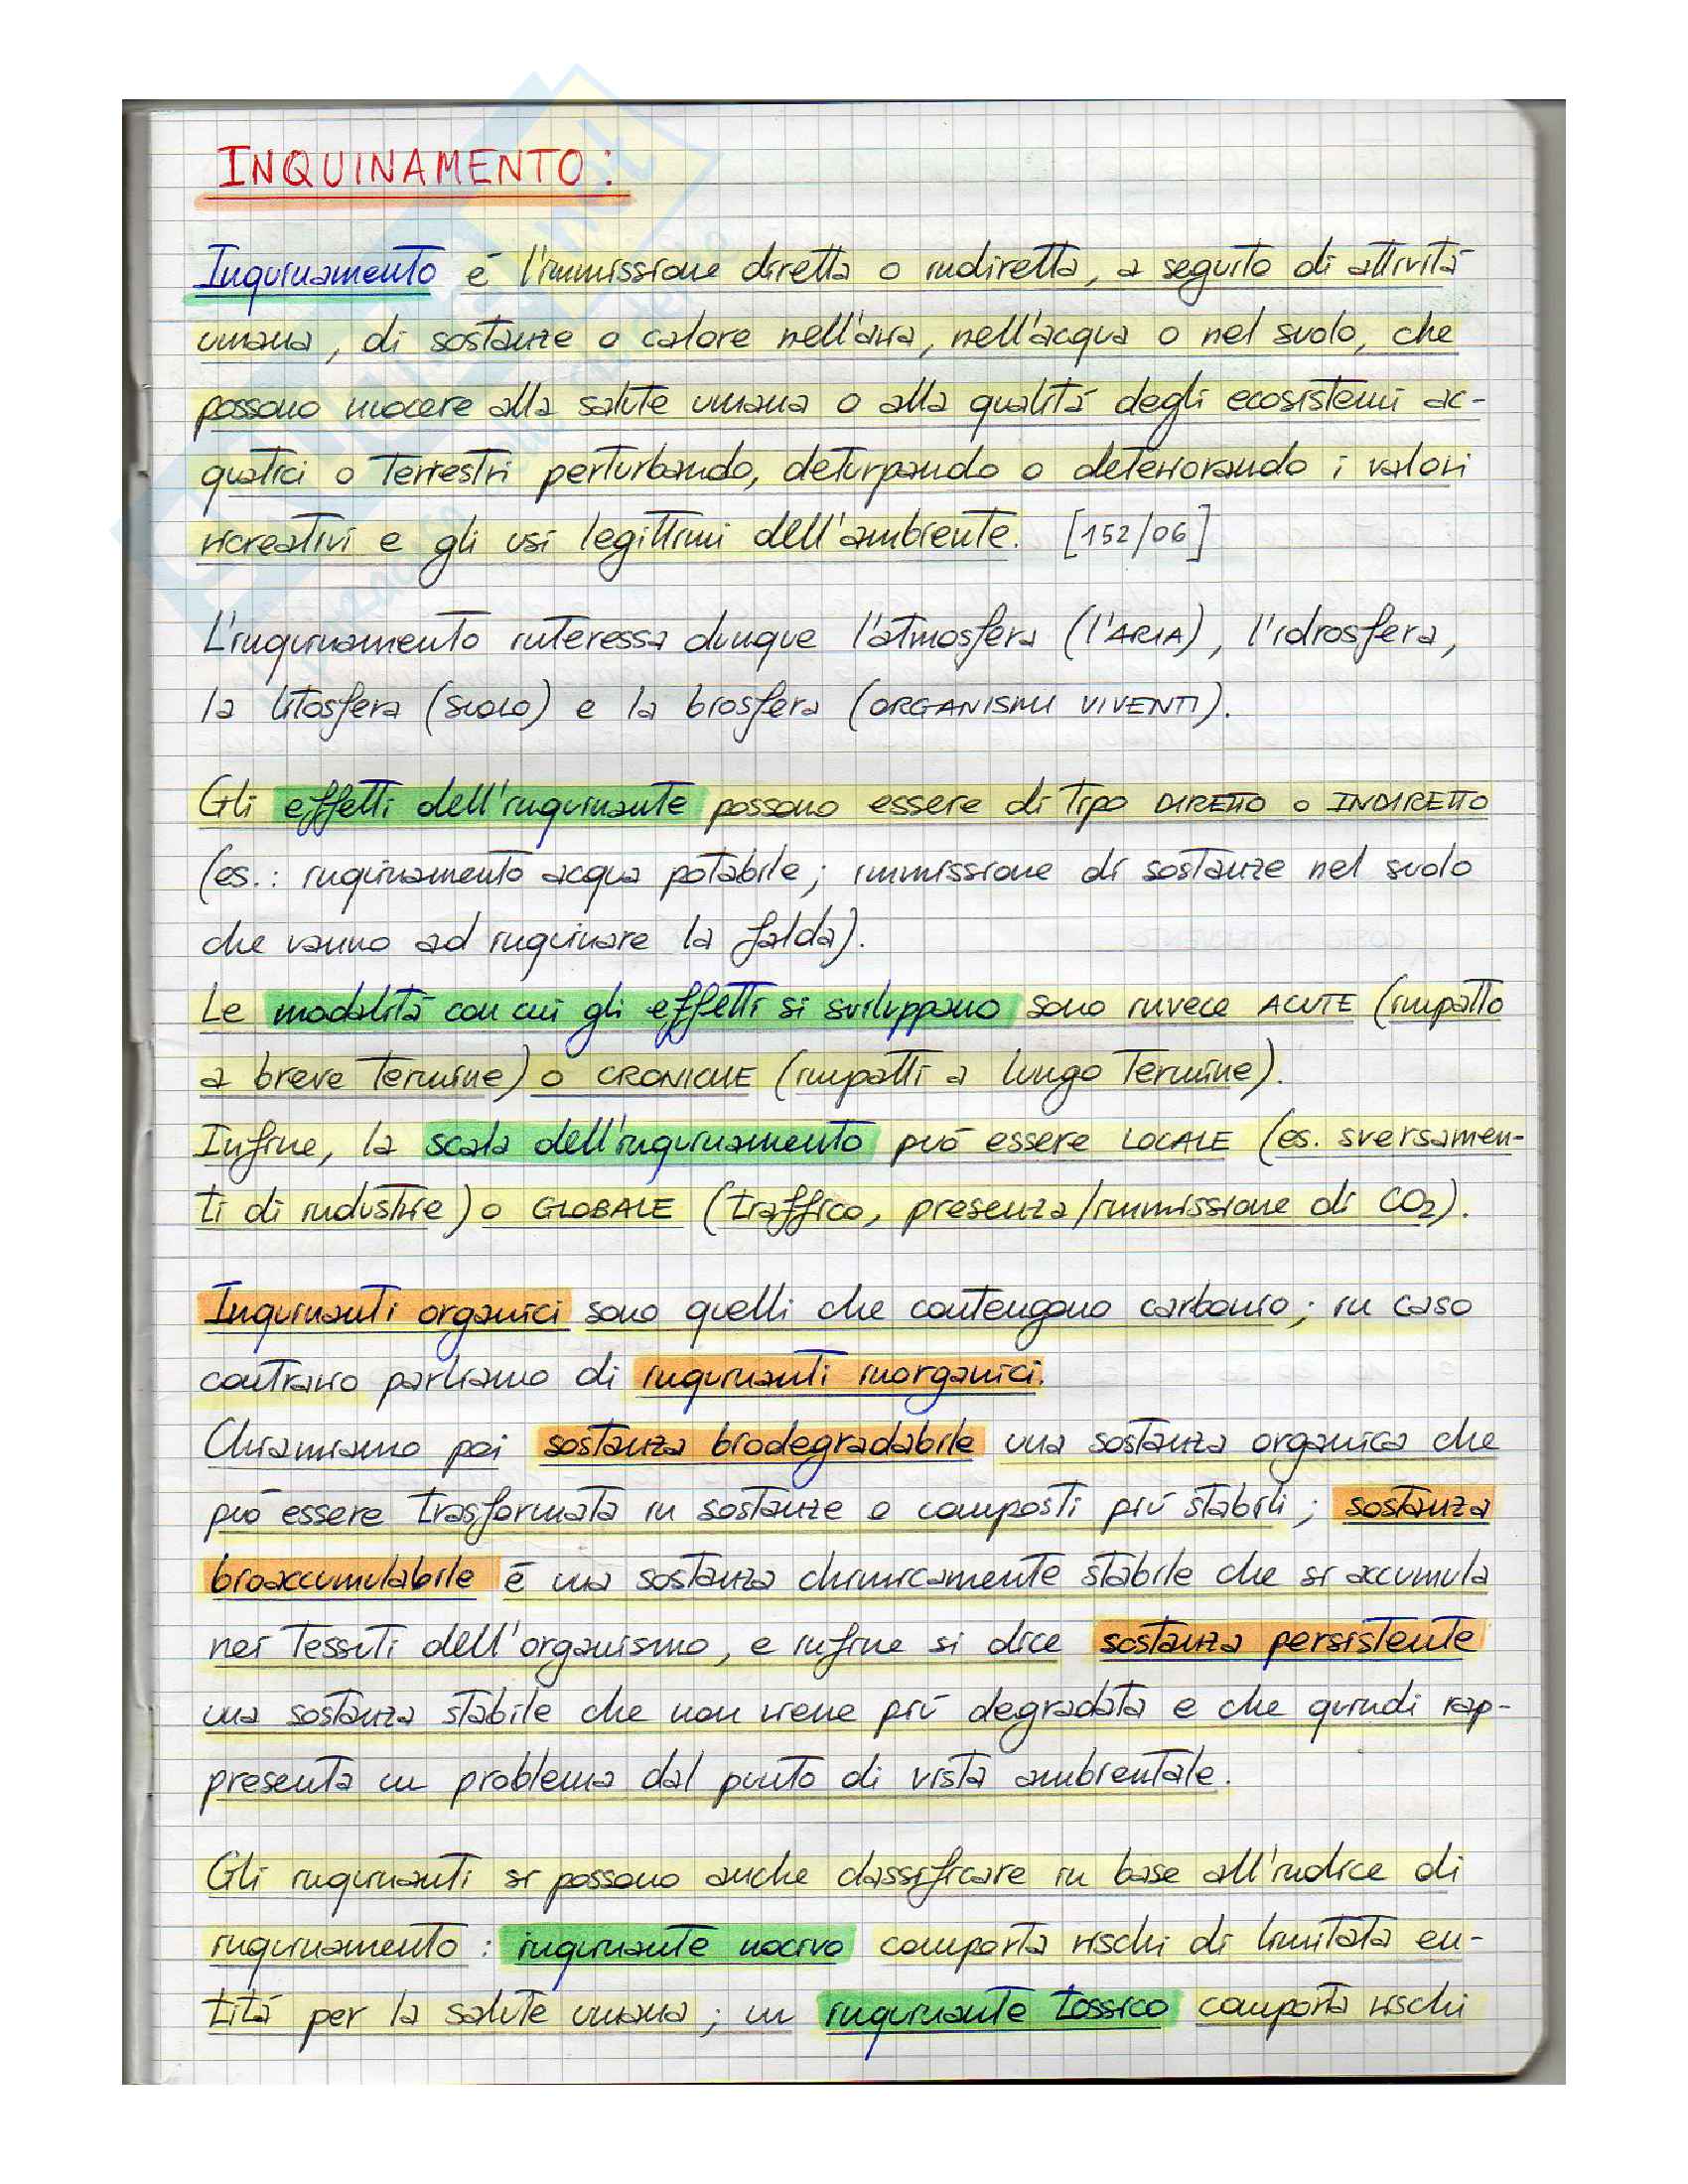 INQUINAMENTO:
Inquinamento é l'immissione diretta o indiretta, a seguito di attività
umana, di sostanze o calore nell'aria, nell'acqua o nel suolo, che
possono nuocere alla salute umana o alla qualità degli ecosistemi ac-
quatici o terrestri perturbando, deturpando o deteriorando i valori
ricreativi e gli usi legittimi dell'ambiente. [152/06]
L'inquinamento interessa dunque l'atmosfera (l'ARIA), l'idrosfera,
la litosfera (SUOLO) e la biosfera (ORGANISMI VIVENTI).
Gli effetti dell'inquinante possono essere di tipo DIRETTO o INDIRETTO
(es.: inquinamento acqua potabile; immissione di sostanze nel suolo
che vanno ad inquinare la falda).
Le modalità con cui gli effetti si sviluppano sono invece ACUTE (impatto
a breve termine) o CRONICHE (impatti a lungo termine).
Infine, la scala dell'inquinamento può essere LOCALE (es. sversamen-
ti di industrie) o GLOBALE (traffico, presenza/immissione di CO2).
Inquinanti organici sono quelli che contengono carbonio; in caso
contrario parliamo di inquinanti inorganici.
Chiamiamo poi sostanza biodegradabile una sostanza organica che
può essere trasformata in sostanze o composti più stabili; sostanza
bioaccumulabile é una sostanza chimicamente stabile che si accumula
nei tessuti dell'organismo, e infine si dice sostanza persistente
una sostanza stabile che non viene più degradata e che quindi rap-
presenta un problema dal punto di vista ambientale.
Gli inquinanti si possono anche classificare in base all'indice di
inquinamento: inquinante nocivo comporta rischi di limitata en-
tità per la salute umana; un inquinante tossico comporta rischi